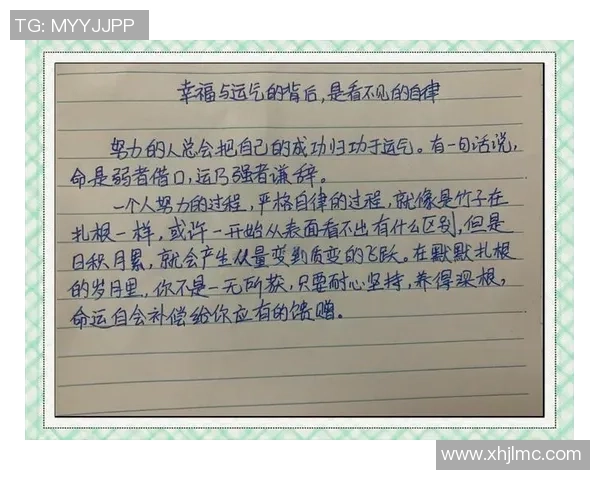 TG: MYYJJPP
幸福与运气的背后,是看不见的自律
努力的人总会把自己的成功归功于运气。有一句话说,
命是弱者借口,运乃强者谦辞。
一个人努力的过程,严格自律的过程,就像是竹子在
扎根一样,或许一开始从表面看不出有什么区别,但是
日积月累,就会产生从量变到质变的飞跃。在默默扎根
的岁月里,你不是一无所获,只要耐心坚持,养得深根,
命运自会补偿给你应有的馈赠。
www.xhjlmc.com